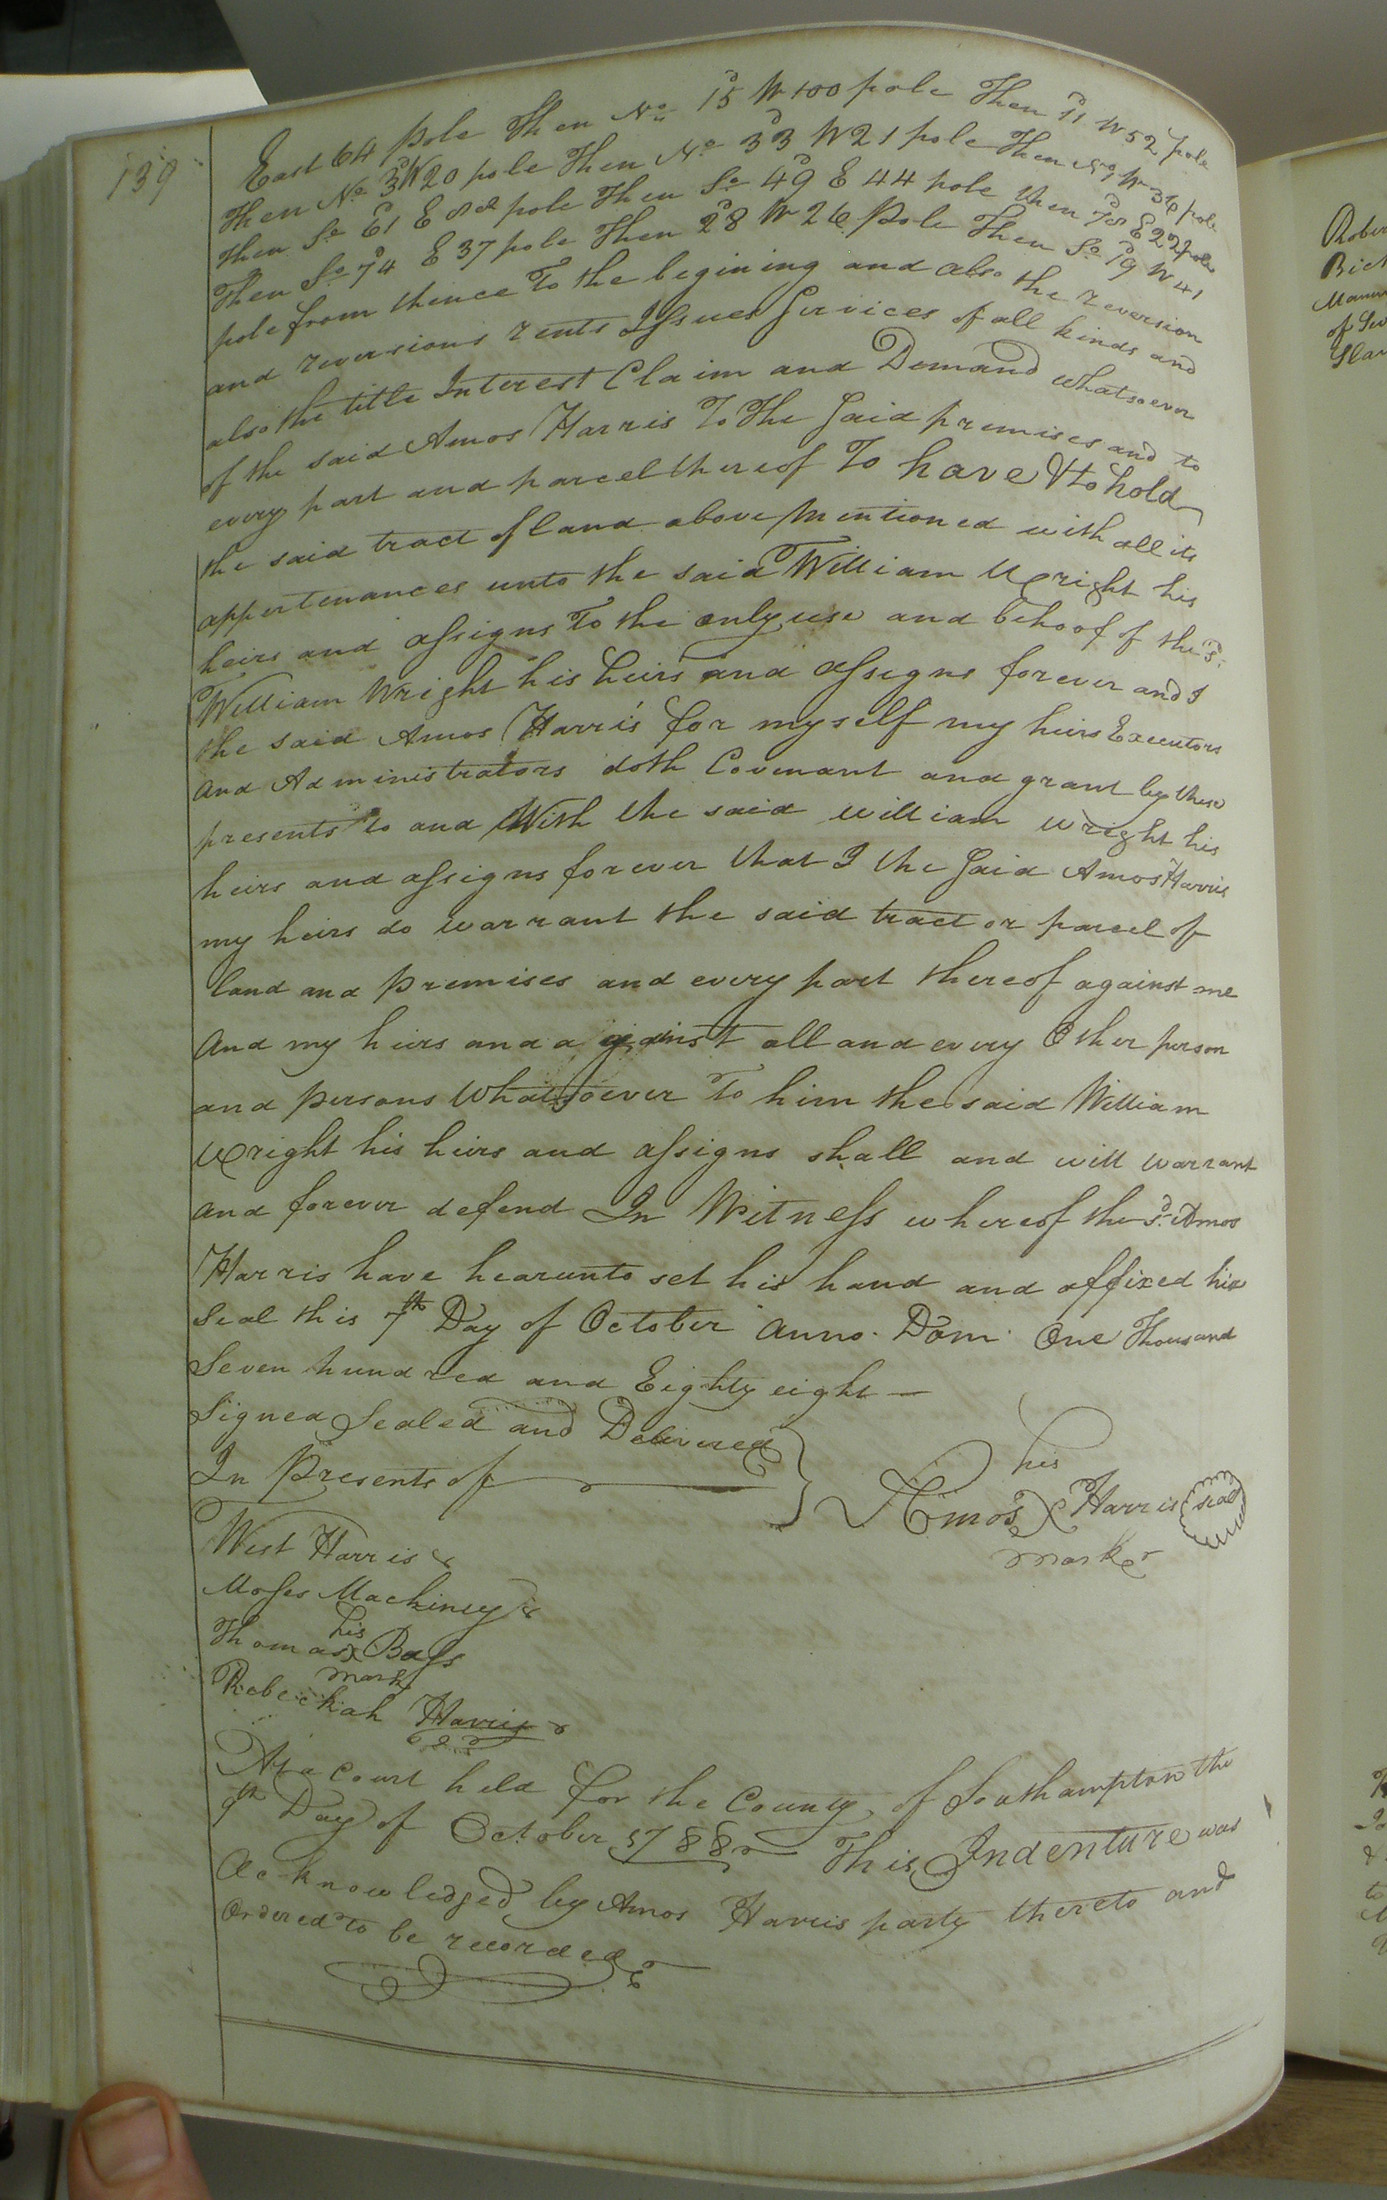 139
East 64 pole Then No. 15d W 100 pole Then 11d W 52 pole
Then No. 3d W 20 pole Then No. 33d W 21 pole Then No. 9 W 36 pole
Then So. 61d E 82 pole Then So. 49d E 44 pole then 78 E 22 pole
Then So. 74d E 37 pole Then 28d W 26 pole Then So. 79d W 41
pole from thence To the begining and also the reversion
and reversions rents Issues Services of all kinds and
also the title Interest Claim and Demand whatsoever
of the said Amos Harris To The Said premises and to
every part and parcel thereof To have & to hold
the said tract of land above mentioned with all its
appertenances unto the said William Wright his
heirs and assigns To the only use and behoof of the sd.
William Wright his heirs and assigns forever and I
the said Amos Harris for myself my heirs Executors
and Administrators doth Covenant and grant by these
presents to and With the said william wright his
heirs and assigns forever that I the Said Amos Harris
my heirs do warrant the said tract or parcel of
land and premises and every part thereof against me
and my heirs and against all and every Other person
and persons Whatsoever To him the said William
Wright his heirs and assigns shall and will warrant
and forever defend In Witness whereof the sd. Amos
Harris have hearunto set his hand and affixed his
Seal this 7th Day of October Anno. Dom. One Thousand
Seven hundred and Eighty eight —
Signed Sealed and Delivered
In Presents of
his
Amos X Harris seal
mark
West Harris
Moses Mackiney
his
Thomas X Bass
mark
Rebeckah Harris
At a Court held for the County of Southampton the
9th Day of October 1788 This Indenture was
Acknowledged by Amos Harris party thereto and
Ordered to be recorded
Rober
of